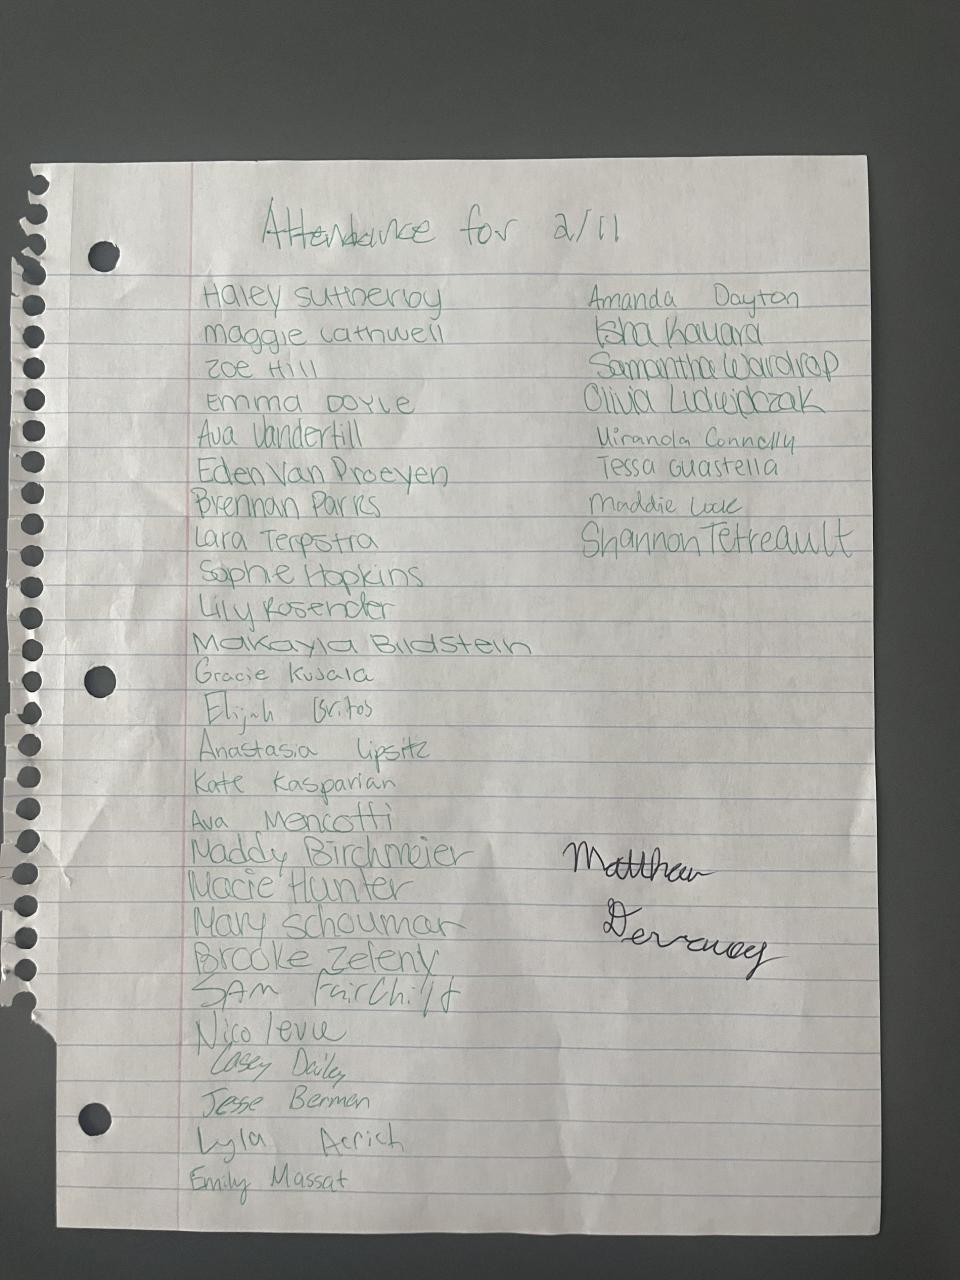 Attendance for 2/11
Haley Sutherby
Maggie Cathwell
Zoe Hill
Emma Doyle
Ava Vanderhill
Eden Van Proeyen
Brennan Parks
Lara Terpstra
Sophie Hopkins
Lily Rosender
Makayla Bildstein
Gracie Kujala
Elijah Britos
Anastasia Lipsitz
Kate Kasparian
Ava Mencotti
Maddy Birchmeier
Macie Hunter
Mary Schoumar
Brooke Zeleny
SAM FairChild
Nico
Casey Dailey
Jesse Berman
Lyla Acrich
Emily Massat
Amanda Dayton
Isha Kavara
Samantha Wardrop
Olivia Ludwidczak
Miranda Connolly
Tessa Guastella
Maddie
Shannon Tetreault
Matthew